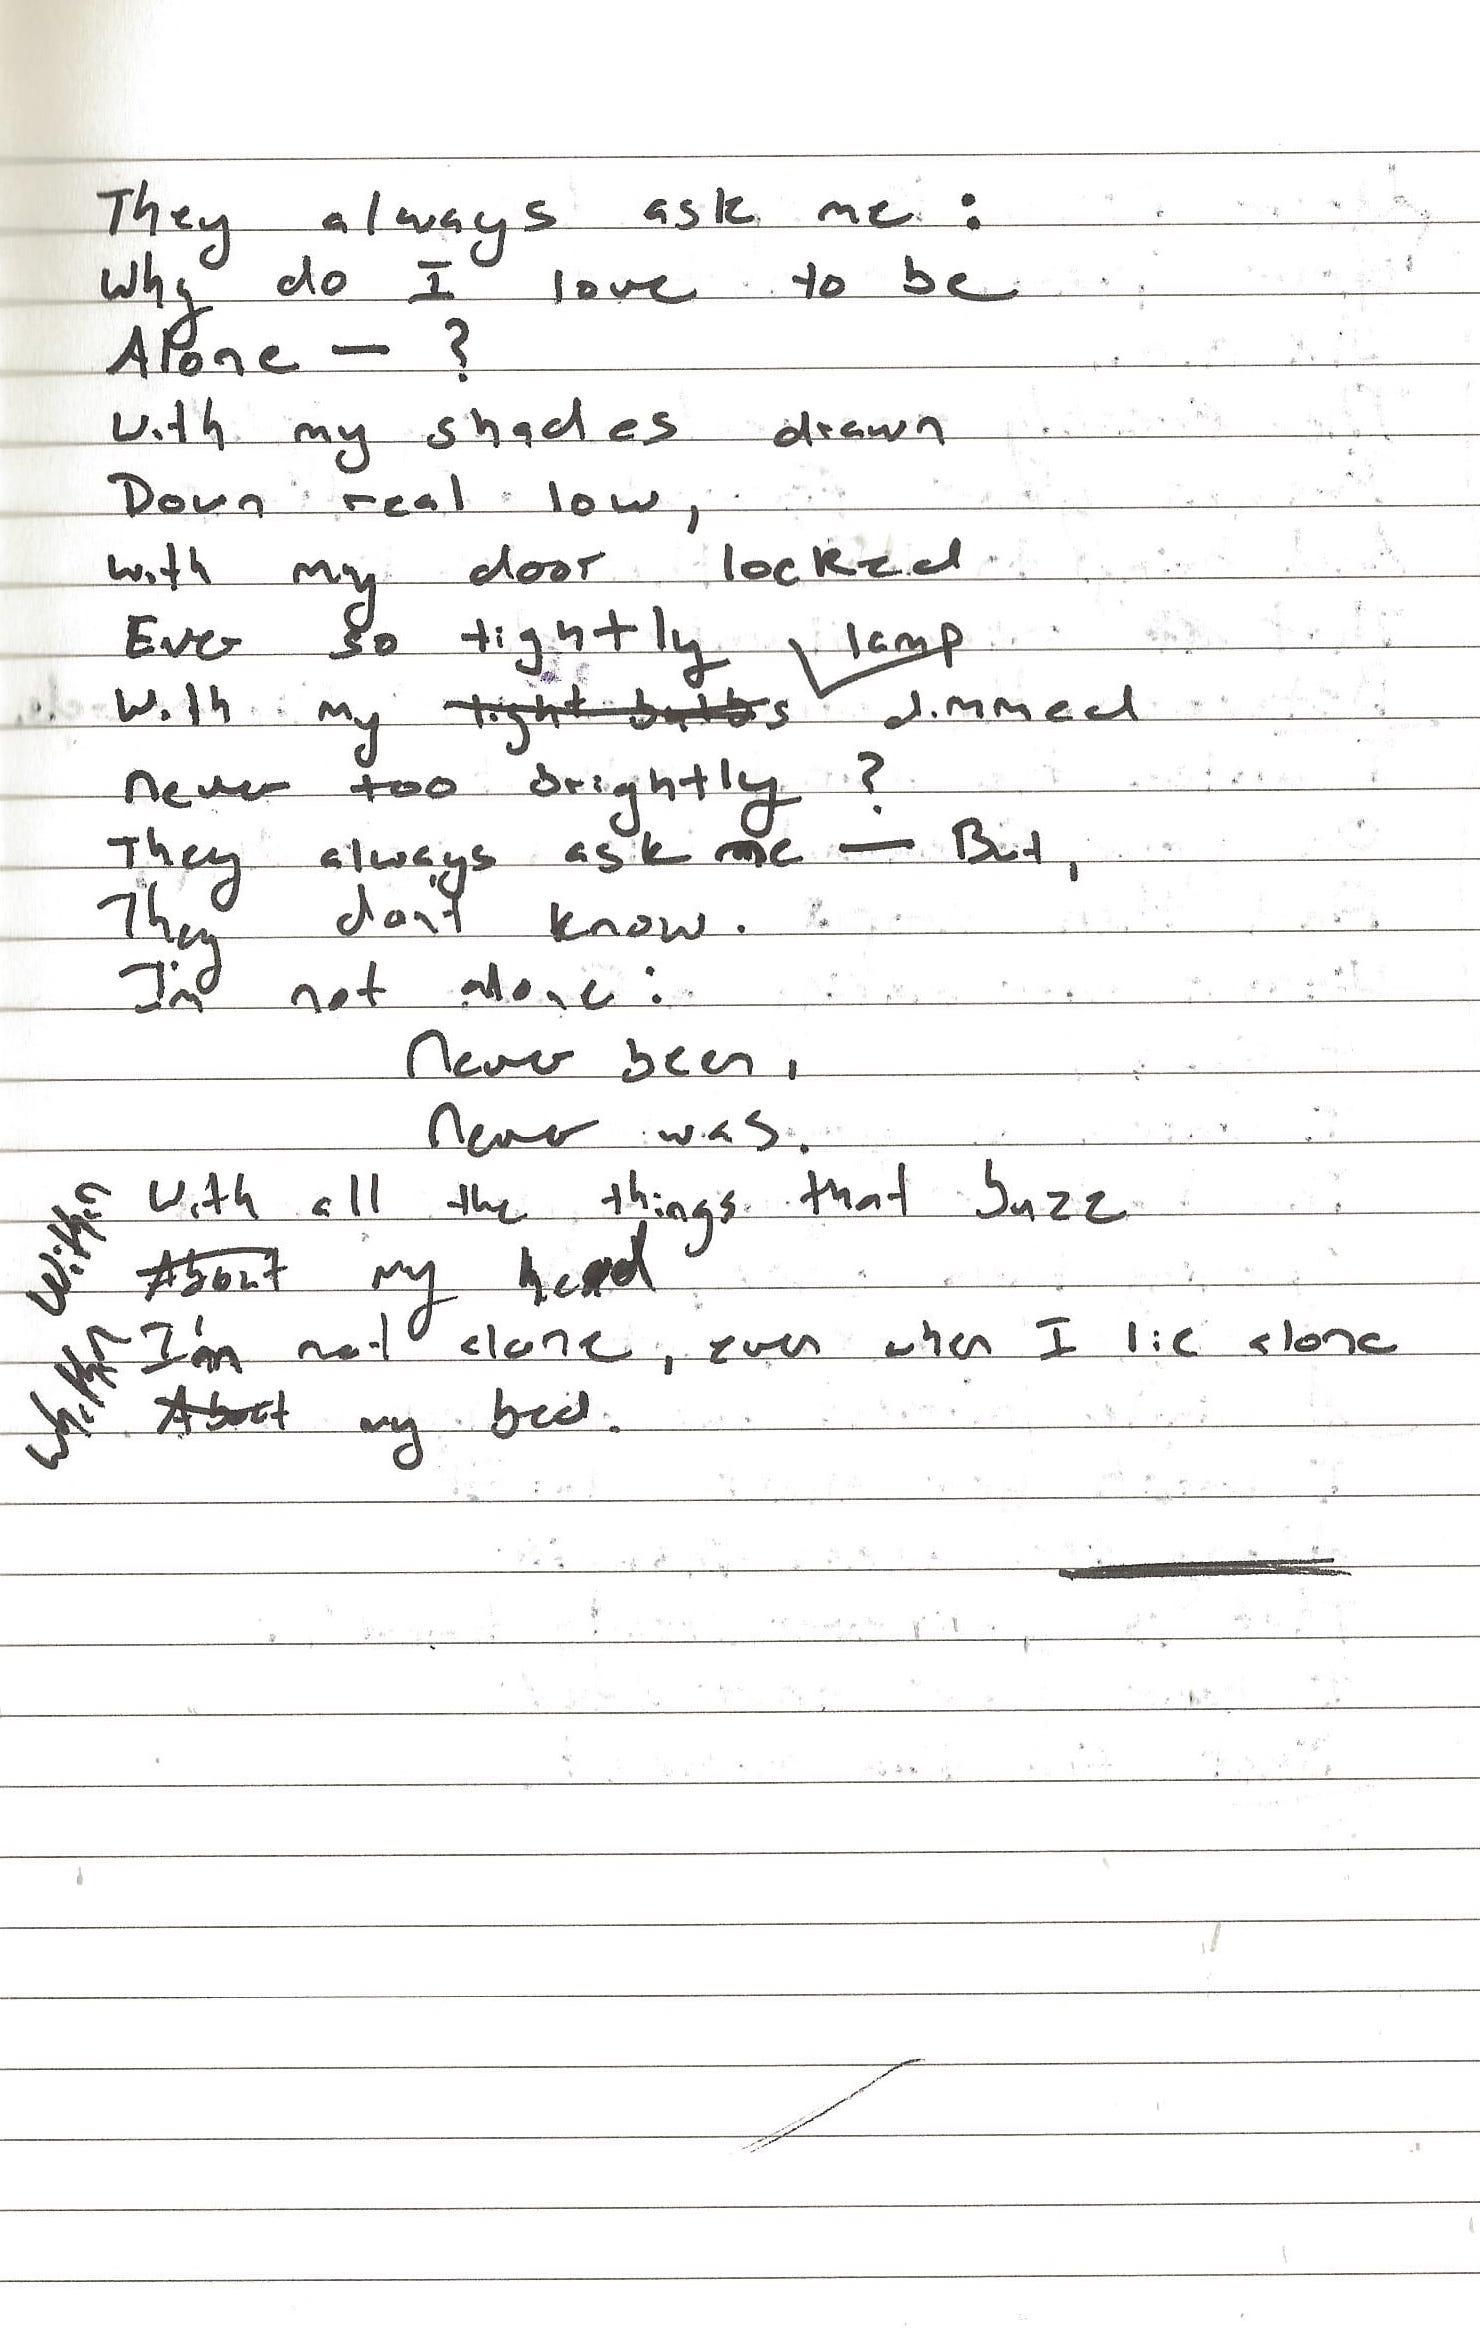 They always ask me :
Why do I love to be
Alone — ?
With my shades drawn
Down real low,
With my door locked
Ever so tightly
lamp
With my light bulbs dimmed
never too brightly ?
They always ask me — But,
They don't know.
I'm not alone :
Never been,
Never was.
With all the things that buzz
Within
About my head
I'm not alone, even when I lie alone
Whithin
About my bed.